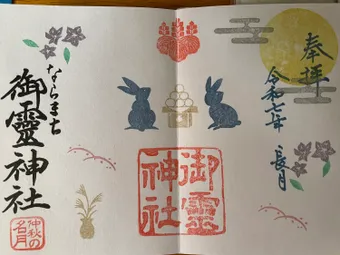 奉拝
令和七年 長月
御靈神社
ならまち
御靈神社
仲秋の名月